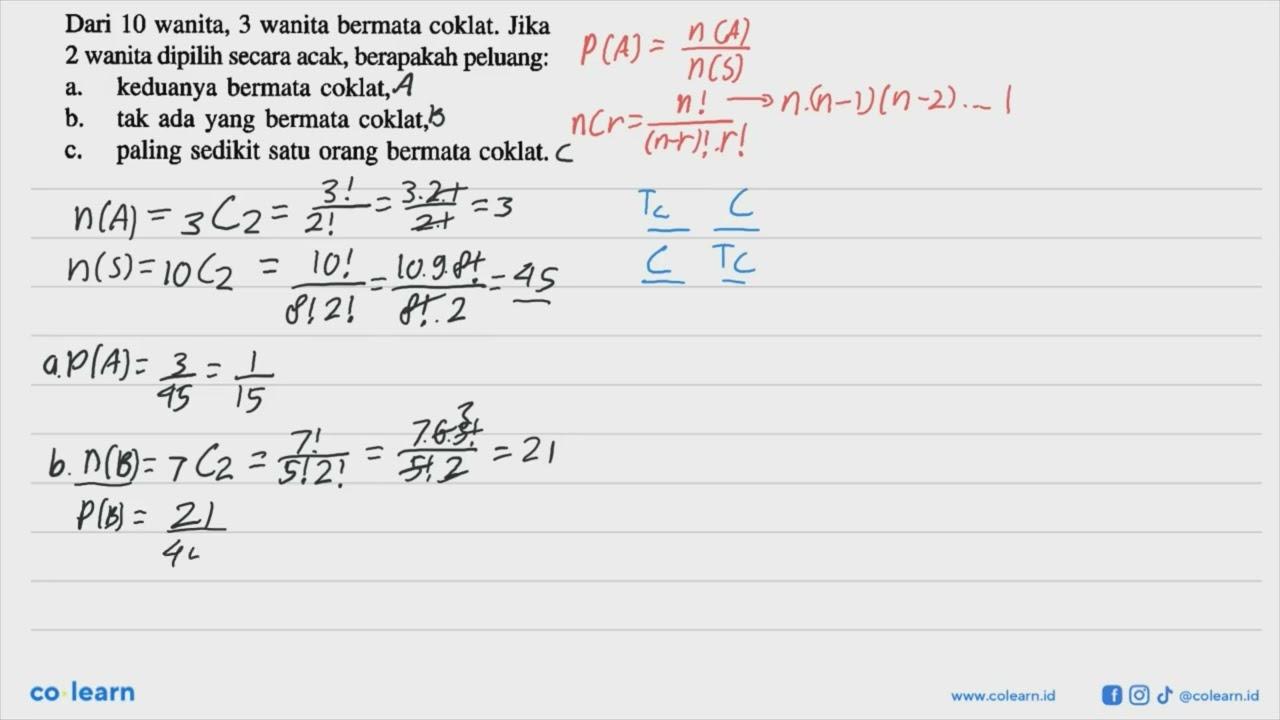 Dari 10 wanita, 3 wanita bermata coklat. Jika
2 wanita dipilih secara acak, berapakah peluang:
a. keduanya bermata coklat, A
b. tak ada yang bermata coklat, B
c. paling sedikit satu orang bermata coklat. C
P(A) = n(A)/n(S)
nCr = n!/(n-r)!.r! → n.(n-1)(n-2)... 1
n(A) = 3C2 = 3!/2! = 3.2.1/2.1 = 3
n(S) = 10C2 = 10!/8!2! = 10.9.8!/8!.2 = 45
Tc C
C TC
a. P(A) = 3/45 = 1/15
b. n(B) = 7C2 = 7!/5!2! = 7.6.5!/5!.2 3 = 21
P(B) = 21/4
co·learn
www.colearn.id @colearn.id